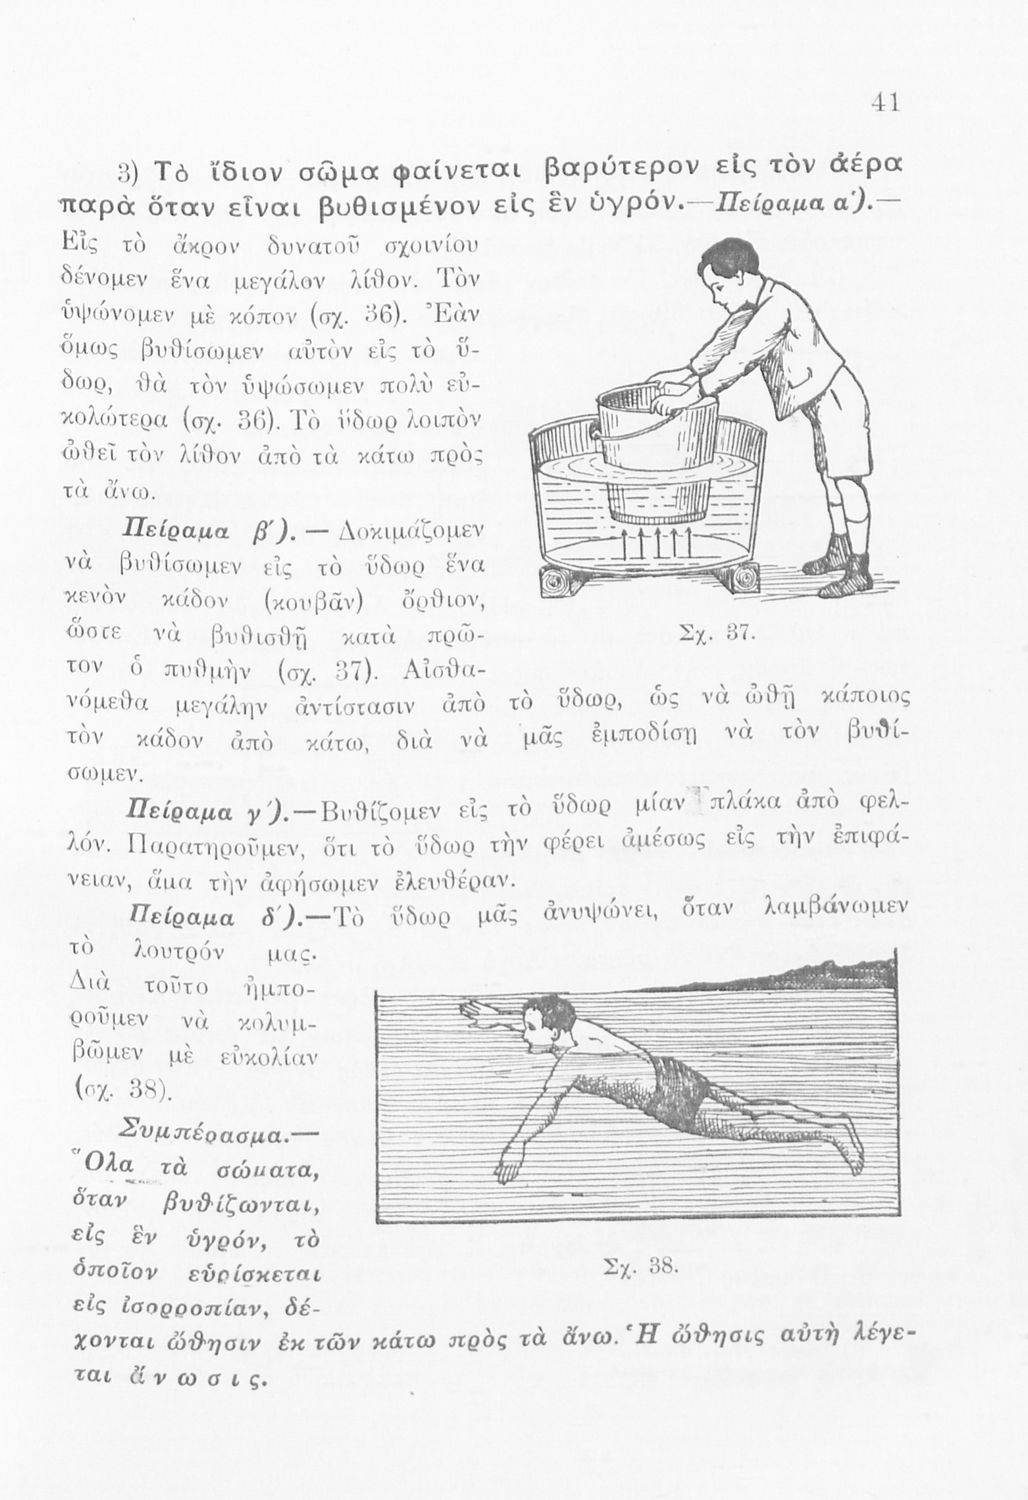 41
3) Τὸ ἴδιον σῶμα φαίνεται βαρύτερον εἰς τὸν ἀέρα
παρὰ ὅταν εἶναι βυθισμένον εἰς ἓν ὑγρόν.—Πείραμα α΄).—
Εἰς τὸ ἄκρον δυνατοῦ σχοινίου
δένομεν ἕνα μεγάλον λίθον. Τὸν
ὑψώνομεν μὲ κόπον (σχ. 36). Ἐὰν
ὅμως βυθίσωμεν αὐτὸν εἰς τὸ ὕ-
δωρ, θὰ τὸν ὑψώσωμεν πολὺ εὐ-
κολώτερα (σχ. 36). Τὸ ὕδωρ λοιπὸν
ὠθεῖ τὸν λίθον ἀπὸ τὰ κάτω πρὸς
τὰ ἄνω.
Πείραμα β΄). — Δοκιμάζομεν
νὰ βυθίσωμεν εἰς τὸ ὕδωρ ἕνα
κενὸν κάδον (κουβᾶν) ὄρθιον,
ὥστε νὰ βυθισθῇ κατὰ πρῶ-
τον ὁ πυθμὴν (σχ. 37). Αἰσθα-
Σχ. 37.
νόμεθα μεγάλην ἀντίστασιν ἀπὸ τὸ ὕδωρ, ὡς νὰ ὠθῇ κάποιος
τὸν κάδον ἀπὸ κάτω, διὰ νὰ μᾶς ἐμποδίσῃ νὰ τὸν βυθί-
σωμεν.
Πείραμα γ΄).—Βυθίζομεν εἰς τὸ ὕδωρ μίαν πλάκα ἀπὸ φελ-
λόν. Παρατηροῦμεν, ὅτι τὸ ὕδωρ τὴν φέρει ἀμέσως εἰς τὴν ἐπιφά-
νειαν, ἅμα τὴν ἀφήσωμεν ἐλευθέραν.
Πείραμα δ΄).—Τὸ ὕδωρ μᾶς ἀνυψώνει, ὅταν λαμβάνωμεν
τὸ λουτρόν μας.
Διὰ τοῦτο ἠμπο-
ροῦμεν νὰ κολυμ-
βῶμεν μὲ εὐκολίαν
(σχ. 38).
Συμπέρασμα.—
Ὅλα τὰ σώματα,
ὅταν βυθίζωνται,
εἰς ἓν ὑγρόν, τὸ
ὁποῖον εὑρίσκεται
εἰς ἰσορροπίαν, δέ-
Σχ. 38.
χονται ὤθησιν ἐκ τῶν κάτω πρὸς τὰ ἄνω. Ἡ ὤθησις αὐτὴ λέγε-
ται ἄ ν ω σ ι ς.